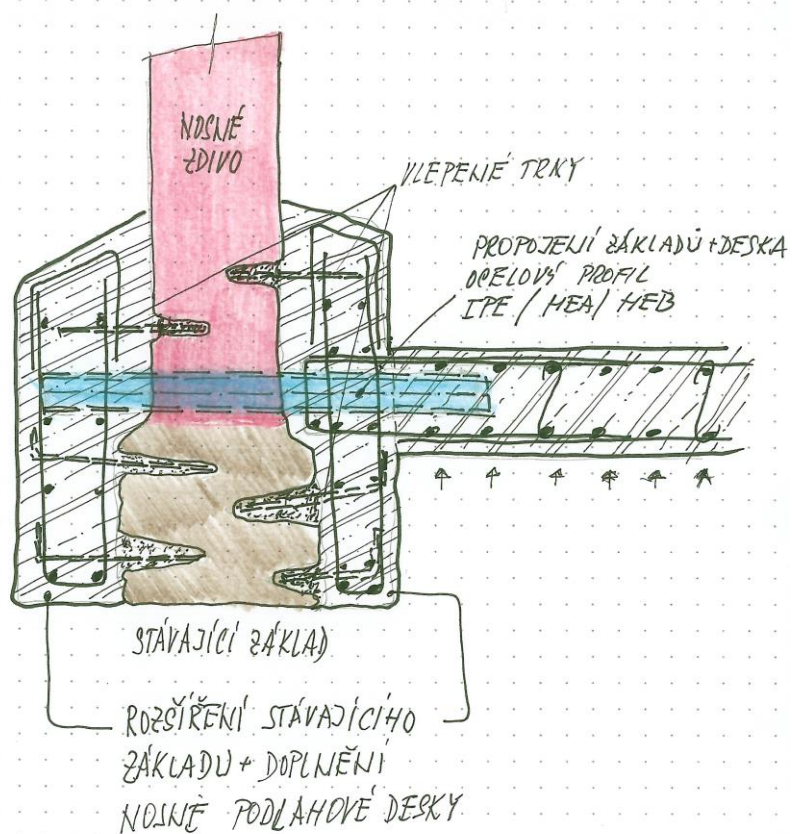 NOSNÉ
ZDIVO
VLEPENÉ TRNY
PROPOJENÍ ZÁKLADŮ + DESKA
OCELOVÝ PROFIL
IPE / HEA / HEB
STÁVAJÍCÍ ZÁKLAD
ROZŠÍŘENÍ STÁVAJÍCÍHO
ZÁKLADU + DOPLNĚNÍ
NOSNÉ PODLAHOVÉ DESKY